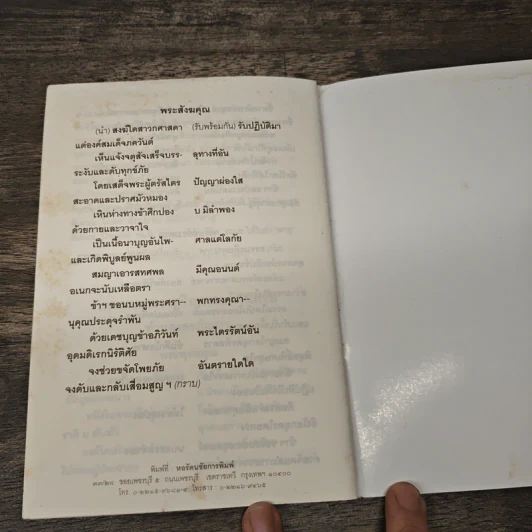 พระสังฆคุณ
(นำ) สงฆ์ใดสาวกศาสดา (รับพร้อมกัน) รับปฏิบัติมา
แต่องค์สมเด็จภควันต์
เห็นแจ้งจตุสัจเสร็จบรร- ลุทางที่อัน
ระงับและดับทุกข์ภัย
โดยเสด็จพระผู้ตรัสไตร ปัญญาผ่องใส
สะอาดและปราศมัวหมอง
เหินห่างทางข้าศึกปอง บ มิลำพอง
ด้วยกายและวาจาใจ
เป็นเนื้อนาบุญอันไพ- ศาลแด่โลกัย
และเกิดพิบูลย์พูนผล
สมญาเอารสทศพล มีคุณอนนต์
อเนกจะนับเหลือตรา
ข้าฯ ขอนบหมู่พระศรา-- พกทรงคุณา--
นุคุณประดุจรำพัน
ด้วยเดชบุญข้าอภิวันท์ พระไตรรัตน์อัน
อุดมดิเรกนิรัติศัย
จงช่วยขจัดโพยภัย อันตรายใดใด
จงดับและกลับเสื่อมสูญ ฯ (กราบ)
พิมพ์ที่ หอรัตนชัยการพิมพ์
ซอยเพชรบุรี ๕ ถนนเพชรบุรี เขตราชเทวี กรุงเทพฯ ๑๐๔๐๐